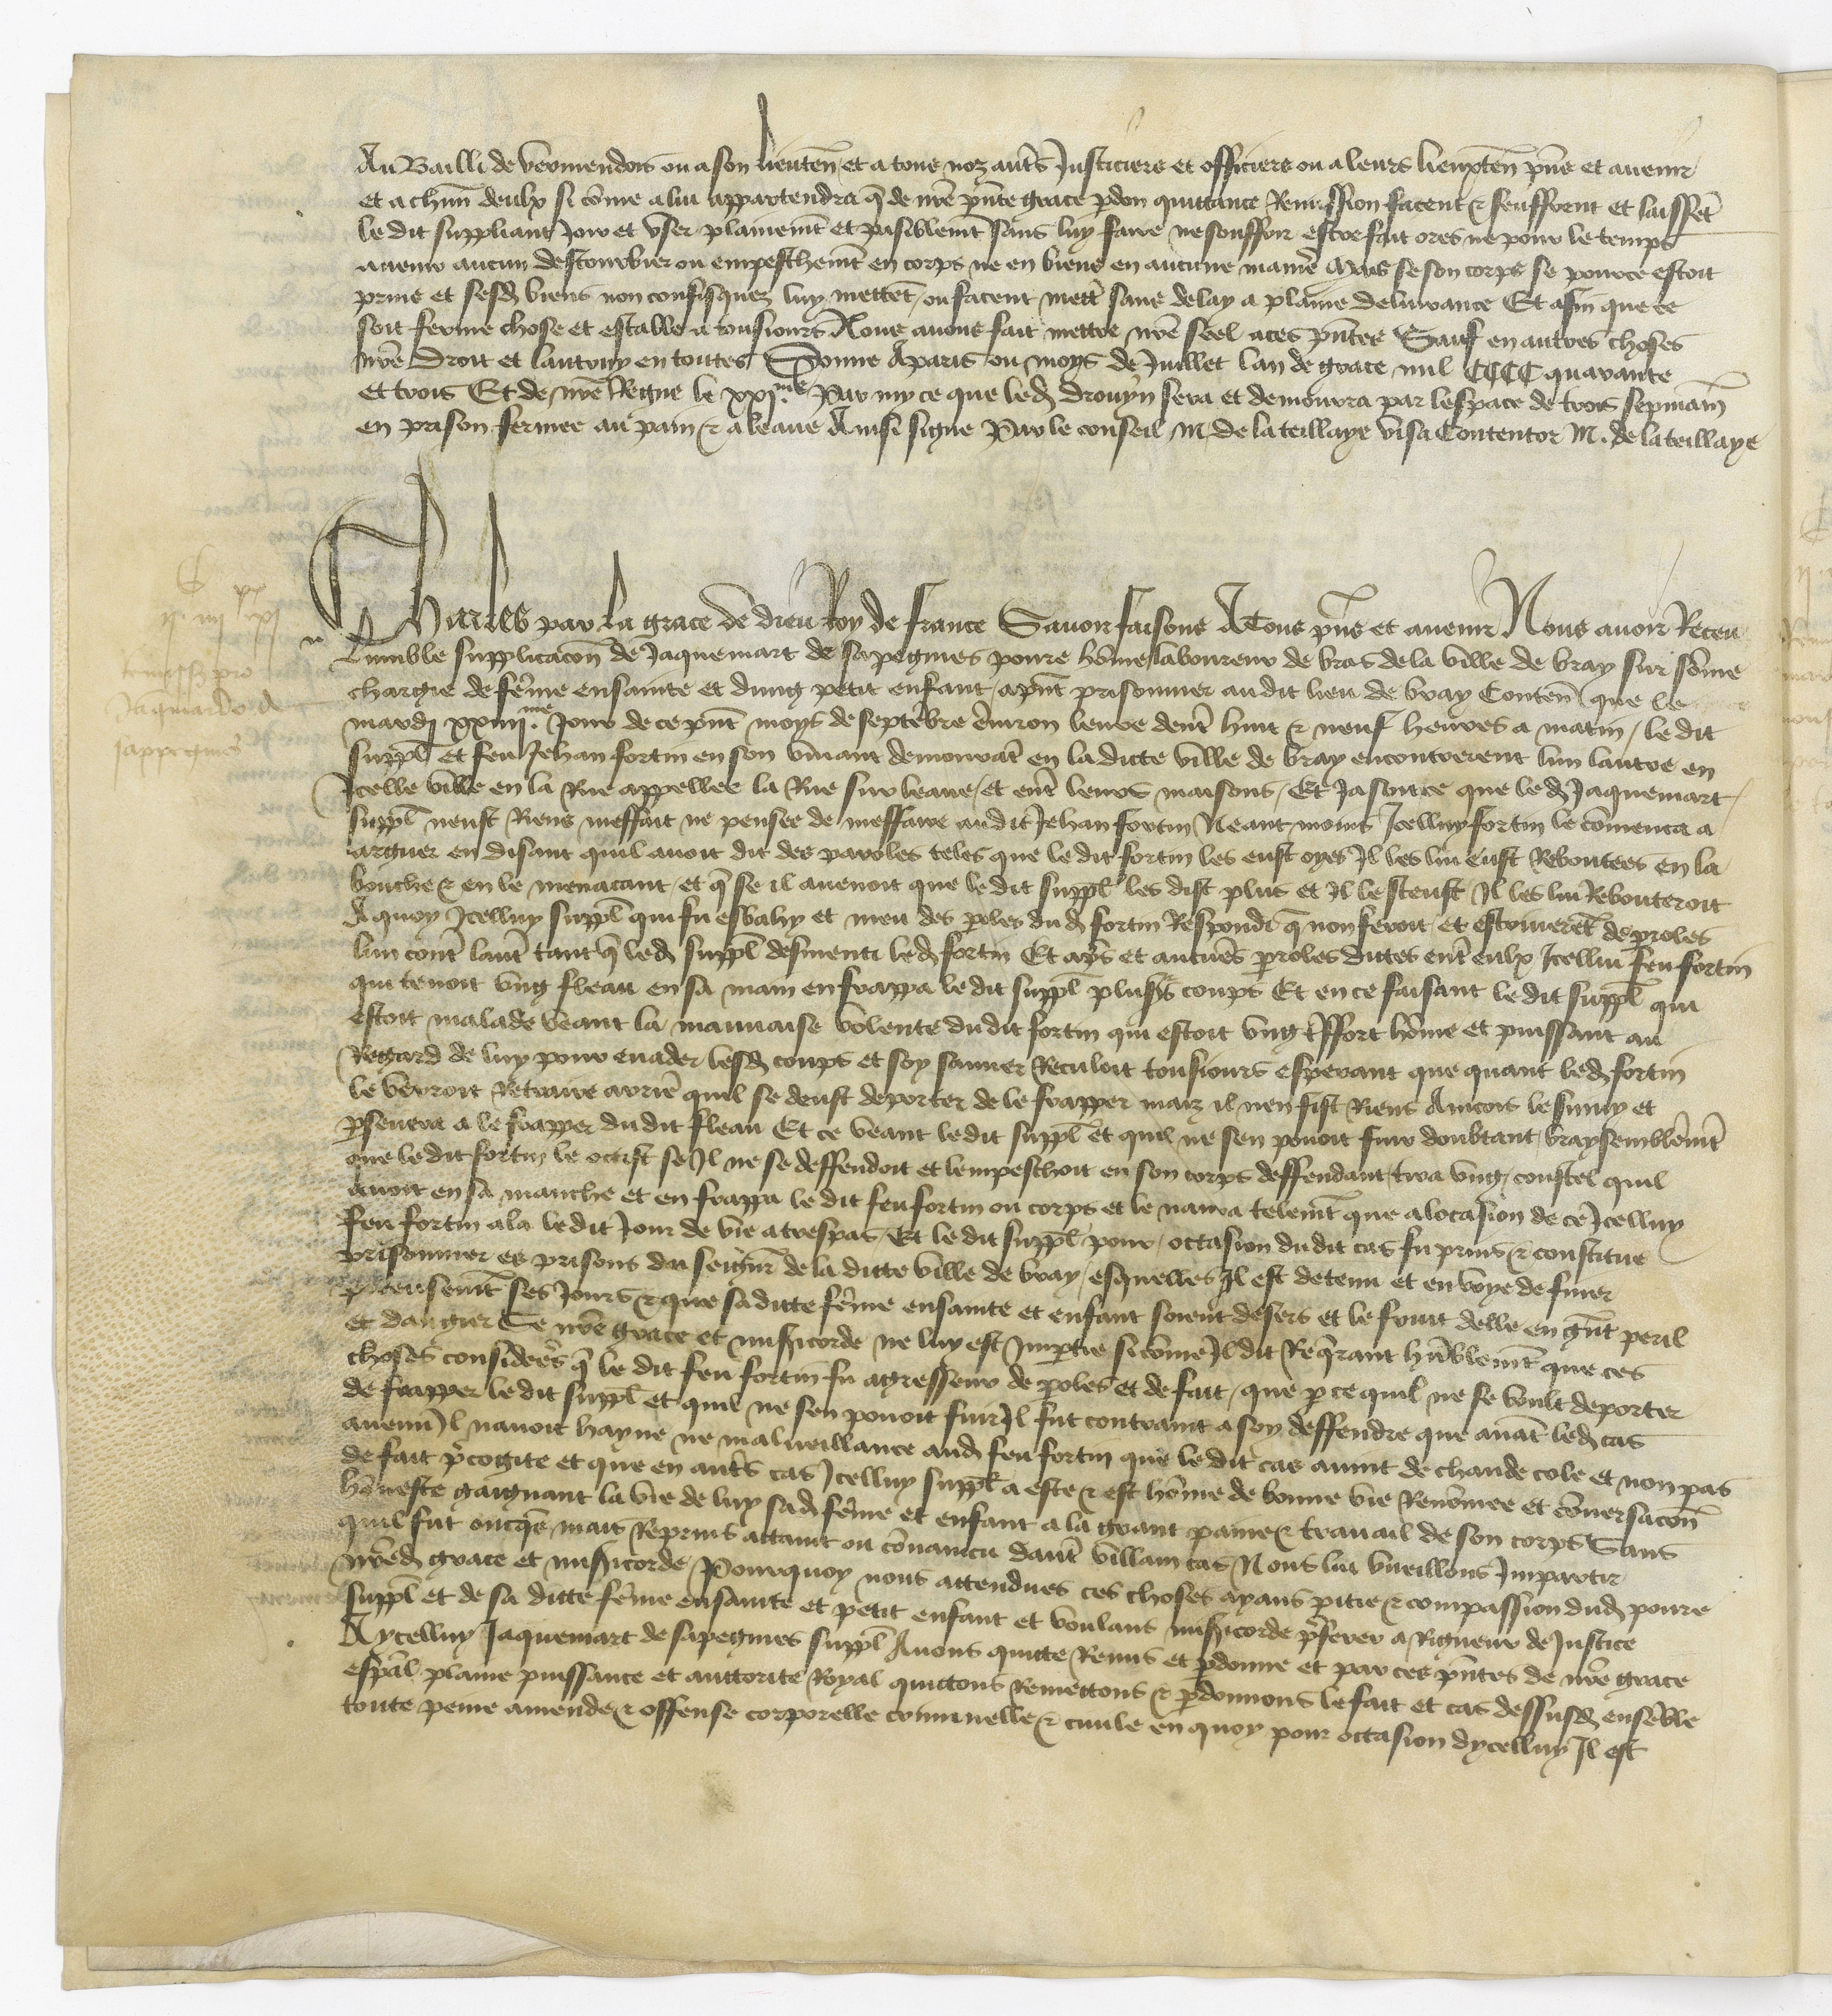 Au Bailli de vermendois ou a son lieuten̄ et a tous noz autr̄s Justiciers et officiers ou a leurs lieuxten̄ pñs et auenir
et a chũn deulx si cõme a lui appartendra q̃ de nr̄e pñte grace pdon quittance Remission facent & seuffrent et laissẽt
le dit suppliant Joir et vser plainemẽt et paisiblemẽt sans luy faire ne souffrir estre fait ores ne pour le temps
auenir aucun destourbier ou empeschemẽt en corps ne en biens en aucune manie᷑ Mais se son corps se pource estoit
prins et sesd biens non confisquez luy mettẽt ou facent mettr̄ sans delay a plaine deliurance Et afin que ce
soit ferme chose et estable a tousiours Nous auons fait mettre nr̄e seel a ces pñtes Sauf en autres choses
nr̄e droit et lautruy en toutes Donne A paris ou moys de Juillet lan de grace mil CCCC quarante
et trois Et de nr̄e Regne le xxj.me Par my ce que led drouyn sera et demourra par lespace de trois sepmain̄
en prison fermee au pain & a leaue Ainsi signe Par le conseil M. de la teillaye visa Contentor M. de la teillaye
Charles par la grace de dieu Roy de france Sauoir faisons A Tous pñs et auenir Nous auoir Receu
lumble supplicacõn de Jaquemart de sapegnies poure hõme laboureur de bras de la ville de bray sur sõme
chargie de fẽme ensainte et dung petit enfant apñt prisonnier au dit lieu de bray Conten̄ que le
mardj xxiiij.me Jour de ce pñt moys de septẽbre ẽuiron leure dentr̄ huit & neuf heures a matin / le dit
suppl̄ et feu Jehan fortin en son viuant demourãt en la dicte ville de bray encontrerent lun lautre en
Jcelle ville en la Rue appellee la Rue sur leaue / et entr̄ leurs maisons / Et Jasoitce que led Jaquemart
suppl̄ neust Riens meffait ne pensee de meffaire audit Jehan fortin Neantmoins Jcelluy fortin le cõmenca a
arguer en disant quil auoit dit des paroles teles que le dit fortin les eust oyes Jl les lui eust Reboutees en la
bouche & en le menacant / et q̃ se il auenoit que le dit suppl̄ les dist plus et Jl le sceust Jl les lui Rebouteroit
A quoy Jcelluy suppl̄ qui fu esbahy et meu des poles dud fortin Respondi q̃ non feroit / et estriuerẽt de proles
lun contr̄ lautr̄ tant q̃ led suppl̄ desmenti led fortin Et apr̄s et aucunes proles dites entr̄ eulx Jcellui feu fortin
qui tenoit vng fleau en sa main en frappa le dit suppl̄ plusr̄s coups Et en ce faisant le dit suppl̄ qui
estoit malade veant la mauuaise volente dudit fortin qui estoit vng t̃ffort hõme et puissant au
Regard de luy pour euader lesd coups et soy sauuer Reculoit tousiours esperant que quant led fortin
le verroit Retraire arrier̄ quil se deust deporter de le frapper maiz il nen fist Riens Aincois le suiuy et
pseuera a le frapper dudit fleau Et ce veant ledit suppl̄ et quil ne sen pouoit fuir doubtant vraysemblemẽt
que ledit fortin le occist se Jl ne se deffendoit et lempeschoit en son corps deffendant tira vng coustel quil
auoit en sa manche et en frappa le dit feu fortin ou corps et le naura telemẽt que a locasion de ce Jcelluy
feu fortin ala le dit Jour de vie a trespas / Et le dit suppl̄ pour occasion dudit cas fu prins & constitue
prisonnier es prisons du seignr̄ de la ditte ville de bray / esquelles Jl est detenu et en voye de finer
piteusemẽt ses Jours & que sa ditte fẽme ensainte et enfant soient desers et le fruit delle en gñt peril
et dangier Se nr̄e grace et misicorde ne luy est Imptie si cõme Jl dit Req̃rant hũblemẽt que ces
choses considerees q̃ le dit feu fortin fu agresseur de poles et de fait / que p ce quil ne se voult deporter
de frapper le dit suppl̄ et quil ne sen pouoit fuir Jl fut contraint a soy deffendre que auãt led cas
auenu Jl nauoit hayne ne malueillance aud feu fortin que le dit cas auint de chaude cole et non pas
de fait p̃cogite et que en autr̄s cas Jcelluy suppl̄ a este & est hõme de bonne vie Renõmee et cõuersacõn
hõneste gaignant la vie de luy sad fẽme et enfant a la grant paine & trauail de son corps Sans
quil fut oncq̃s mais Reprins attaint ou cõuaincu dautr̄ villain cas Nous lui vueillons Impartir
nr̄ed grace et misicorde Pourquoy nous attendues ces choses ayans pitie & compassion dud poure
suppl̄ et de sa ditte fẽme ensainte et petit enfant et voulans misicorde p̃ferer a Rigueur de Justice
A ycelluy Jaquemart de sapegnies suppl̄ Auons quitte Remis et pdonne et par ces pñtes de nr̄e grace
esp̃al plaine puissance et auttorite Royal quittons Remettons & pdonnons le fait et cas dessusd ensẽble
toute peine amende & offense corporelle criminelle & ciuile en quoy pour occasion dycelluy Jl est